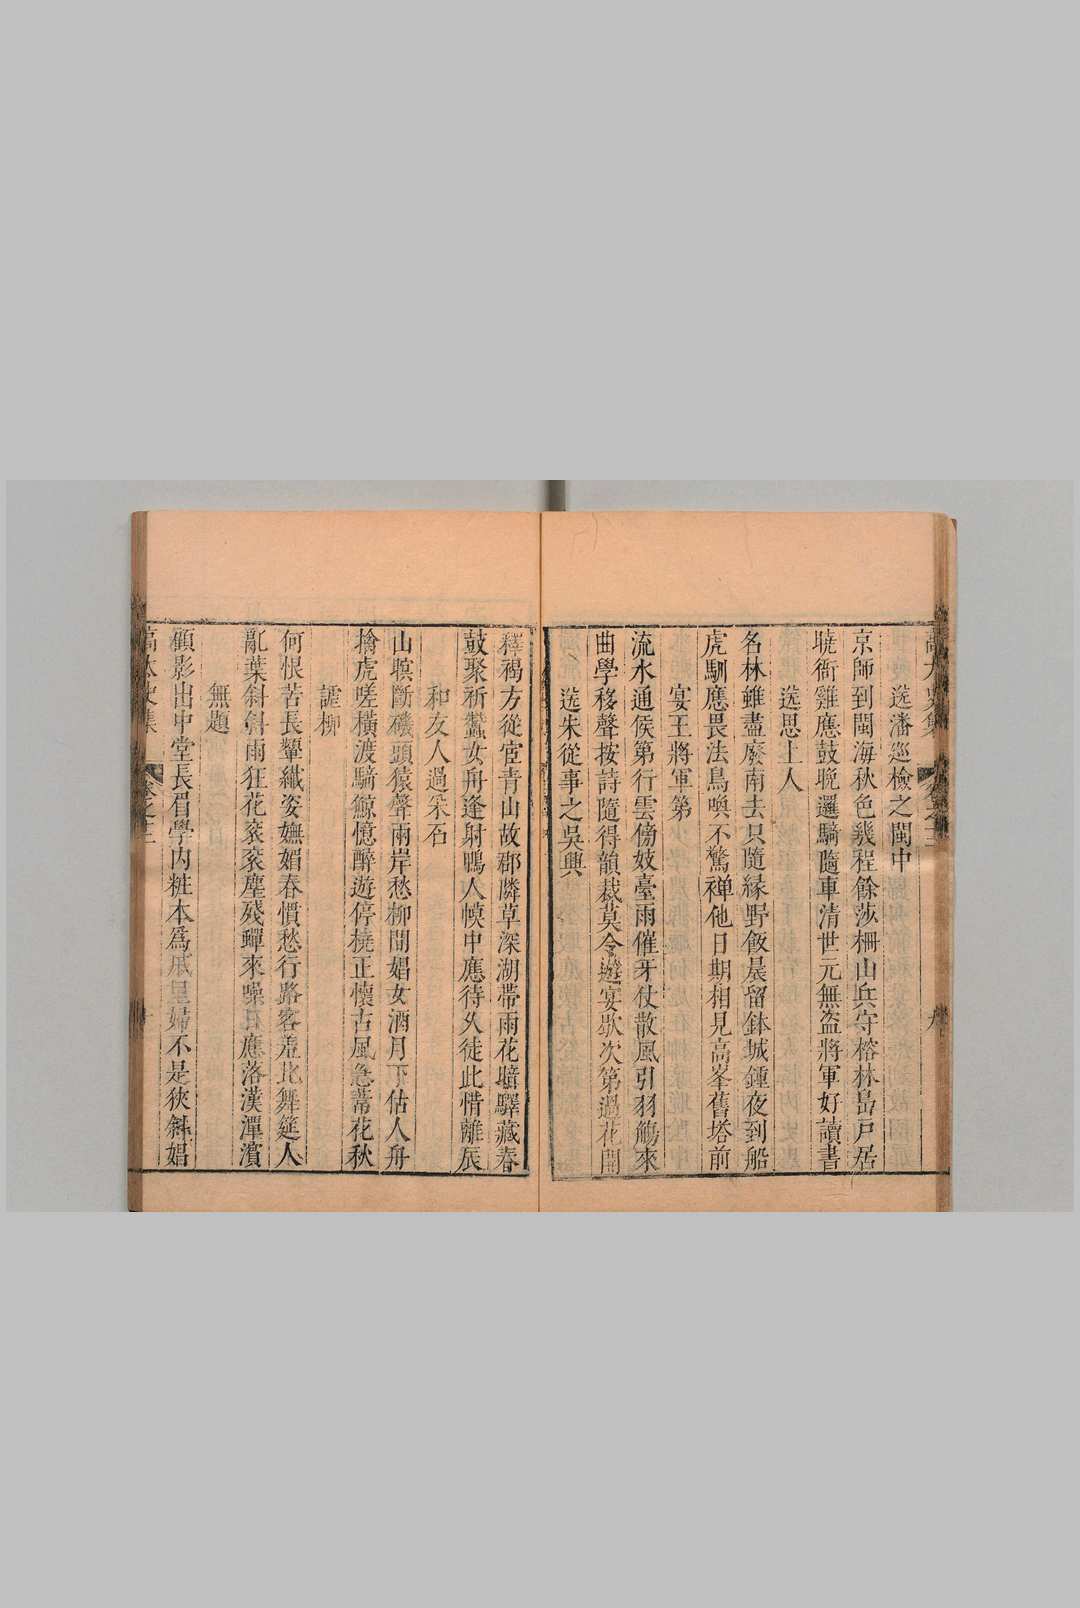 送潘巡檢之閩中
京師到閩海秋色幾程餘莎柵山兵守榕林島戸居
曉衙雞應鼓晚邏騎隨車清世元無盜將軍好讀書
送思上人
名林雖盡廢南去只隨緣野飯晨留鉢城鍾夜到船
虎馴應畏法鳥喚不驚禅他日期相見高峯舊塔前
宴王將軍第
流水通侯第行雲傍妓臺雨催牙仗散風引羽觴來
曲學移聲按詩隨得韻裁莫令遊宴歇次第過花開
送朱從事之吳興
釋褐方從宦青山故郡隣草深湖帶雨花暗驛藏春
鼓聚祈蠶女舟逢射鴨人幙中應待久徒此惜離辰
和友人過采石
山暝斷磯頭猿聲兩岸愁柳間娼女酒月下估人舟
擒虎嗟橫渡騎鯨憶醉遊停橈正懷古風急葦花秋
謔柳
何恨苦長顰纖姿嫵媚春慣愁行路客羞比舞筵人
亂葉斜斜雨狂花衮衮塵殘蟬來噪日應落漢潭濱
無題
顧影出中堂長眉學内粧本爲底里婦不是狹斜娼
高太史集
卷之十二
十
高太史集
卷之十二
九